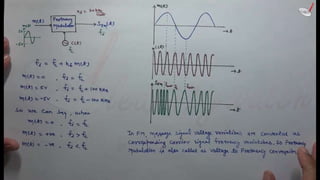 m(t)
Frequency
Modulator
SFM(t)
fi
c(t)
fc
5V
-5V
fi = fc + kf m(t)
m(t) = 0 , fi = fc
m(t) = 5V , fi = fc + 100 KHz
m(t) = -5V , fi = fc - 100 KHz
So we can say, when
m(t) = 0 , fi = fc
m(t) = +ve , fi > fc
m(t) = -ve , fi < fc
m(t)
t
c(t)
t
SFM(t)
fmax
fmin
t
In FM, message signal voltage variations are converted as
corresponding carrier signal frequency variations. So Frequency
Modulator is also called as Voltage to Frequency Converter.